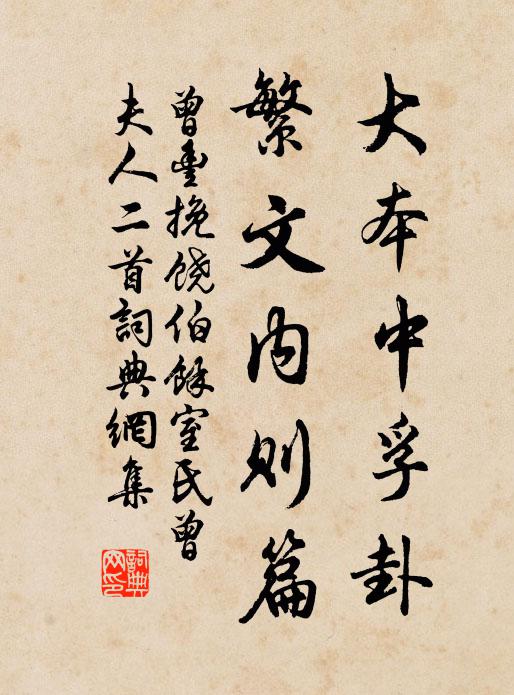 大本中孚卦
繁文内则篇
曾豊挽饶伯餘室氏曾
夫人二首詞典網集
詞典网印